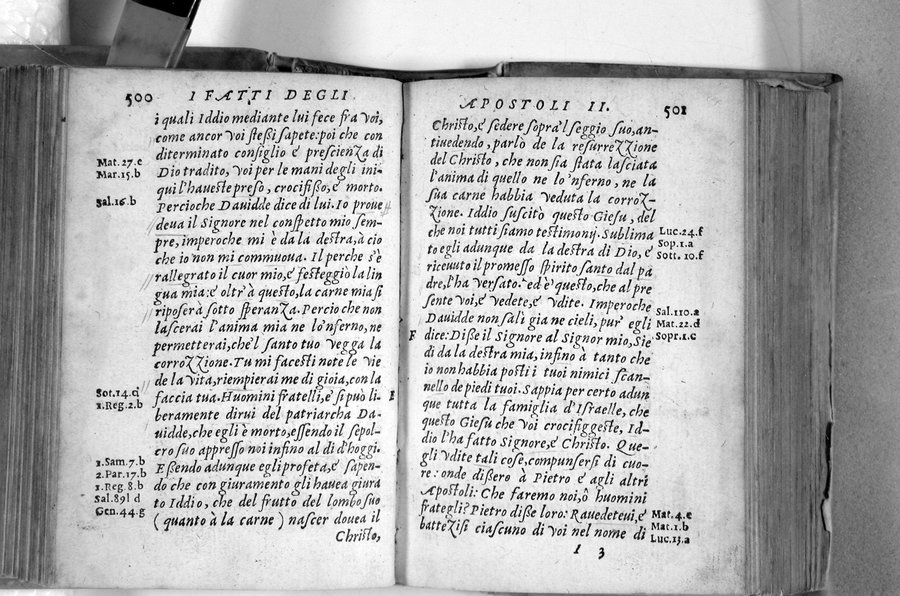 500 I FATTI DEGLI
i quali Iddio mediante lui fece fra voi,
come ancor voi steßi sapete: poi che con
diterminato consiglio e prescienza di
Mat.27.e
Dio tradito, voi per le mani degli ini-
Mar.15.b
qui l'haueste preso, crocifißo, e morto.
Sal.16.b
Percioche Dauidde dice di lui. Io proue
deua il Signore nel conspetto mio sem-
pre, imperoche mi è da la destra, à cio
che io non mi commuoua. Il perche s'è
rallegrato il cuor mio, e festeggiò la lin
gua mia: e oltr'à questo, la carne mia si
riposerà sotto speranza. Percio che non
lascerai l'anima mia ne lo'nferno, ne
permetterai, che'l santo tuo vegga la
corrozzione. Tu mi facesti note le vie
de la vita, riempierai me di gioia, con la
Sot.14.d
faccia tua. Huomini fratelli, e' si può li-
1.Reg.2.b
beramente dirui del patriarcha Da-
uidde, che egli è morto, essendo il sepol-
cro suo appresso noi infino al di d'hoggi.
1.Sam.7.b
Eßendo adunque egli profeta, e sapen-
2.Par.17.b
do che con giuramento gli hauea giura
1.Reg.8.b
to Iddio, che del frutto del lombo suo
Sal.89l d
Gen.44.g
( quanto à la carne ) nascer douea il
Christo,
APOSTOLI II. 501
Christo, e sedere sopra'l seggio suo, an-
tiuedendo, parlò de la resurezzione
del Christo, che non sia stata lasciata
l'anima di quello ne lo'nferno, ne la
sua carne habbia veduta la corroz-
zione. Iddio suscitò questo Giesu, del
che noi tutti siamo testimonij. Sublima
Luc.24.f
to egli adunque da la destra di Dio, e
Sop.1.a
riceuuto il promesso spirito santo dal pa
Sott.10.f
dre, l'ha versato. ed è questo, che al pre
sente voi, e vedete, e vdite. Imperoche
Sal.110.a
Dauidde non salì gia ne cieli, pur' egli
Mat.22.d
F dice: Diße il Signore al Signor mio, Sie
Sopr.1.c
di da la destra mia, infino à tanto che
io non habbia posti i tuoi nimici scan-
nello de piedi tuoi. Sappia per certo adun
que tutta la famiglia d'Israelle, che
questo Giesu che voi crocifiggeste, Id-
dio l'ha fatto Signore, e Christo. Que-
gli vdite tali cose, compunsersi di cuo-
re: onde dißero à Pietro e agli altri
Apostoli: Che faremo noi, ô huomini
frategli? Pietro diße loro: Rauedeteui, e
Mat.4.e
battezisi ciascuno di voi nel nome di
Mat.1.b
Luc.13.a
I 3